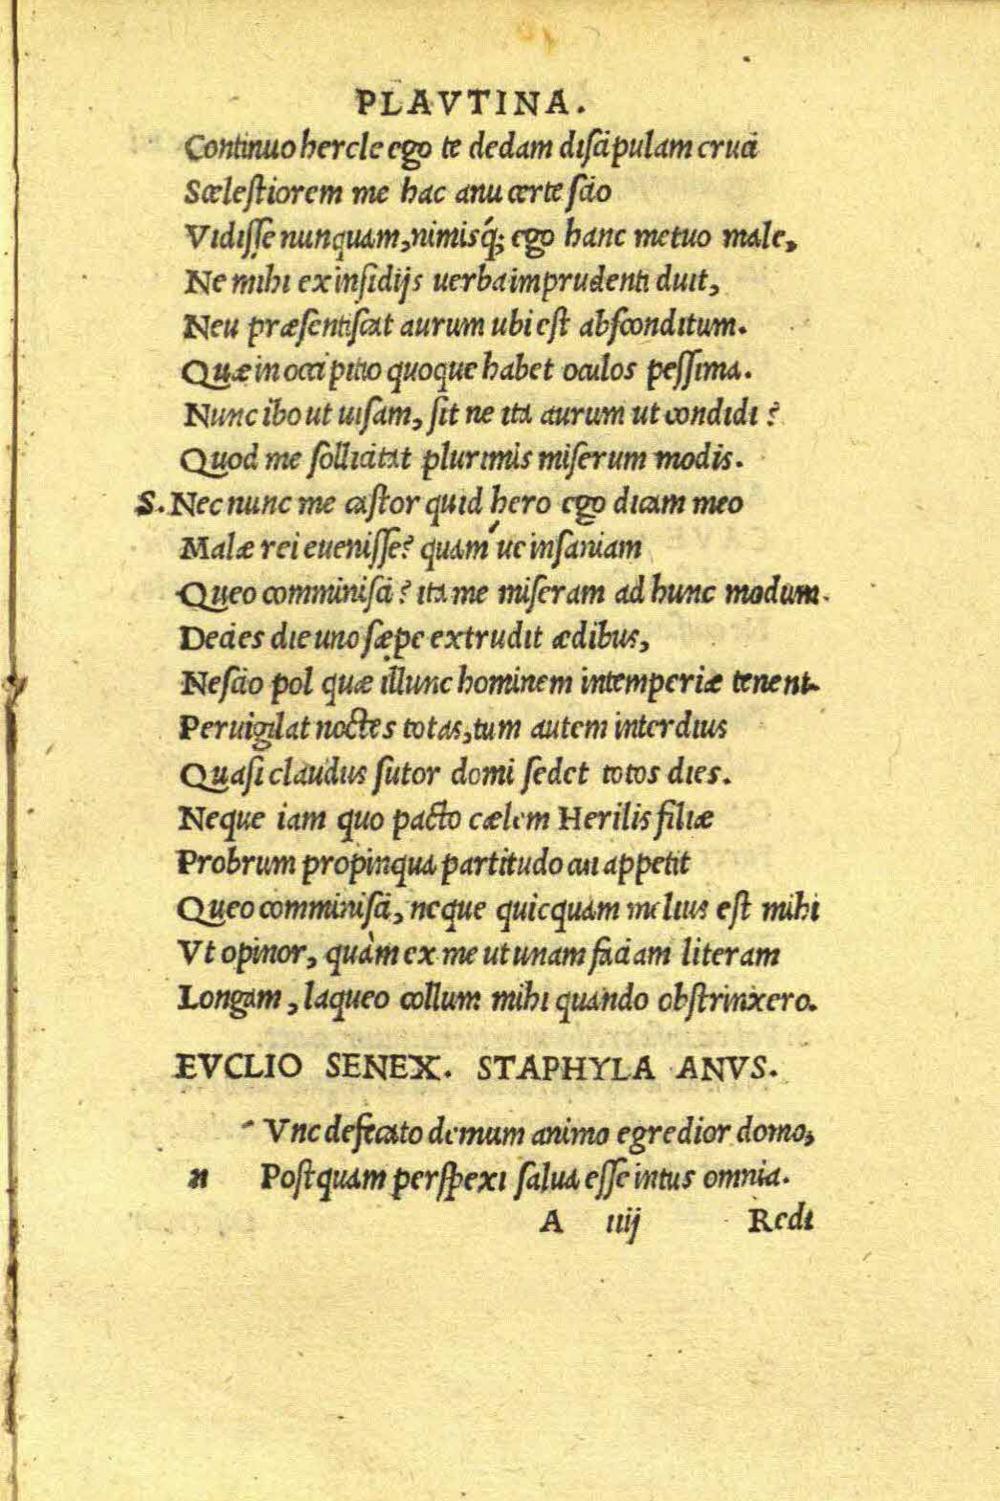 PLAVTINA.
Continuo hercle ego te dedam discipulam cruci
Scelestiorem me hac anu certe scio
Vidisse nunquam, nimisq́; ego hanc metuo male,
Ne mihi ex insidijs uerba imprudenti duit,
Neu præsentiscat aurum ubi est absconditum.
Quæ in occipitio quoque habet oculos pessima.
Nunc ibo ut uisam, sit ne ita aurum ut condidi?
Quod me sollicitat plurimis miserum modis.
S. Nec nunc me castor quid hero ego dicam meo
Malæ rei euenisse? quaḿ ue insaniam
Queo comminisci? ita me miseram ad hunc modum.
Decies die uno sæpe extrudit ædibus,
Nescio pol quæ illunc hominem intemperiæ tenent.
Peruigilat noctes totas, tum autem interdius
Quasi claudus sutor domi sedet totos dies.
Neque iam quo pacto cælem Herilis filiæ
Probrum propinqua partitudo cui appetit
Queo comminisci, neque quicquam melius est mihi
Vt opinor, quàm ex me ut unam faciam literam
Longam, laqueo collum mihi quando obstrinxero.
EVCLIO SENEX. STAPHYLA ANVS.
Vnc defecato demum animo egredior domo,
n Postquam perspexi salua esse intus omnia.
A iiij Redi